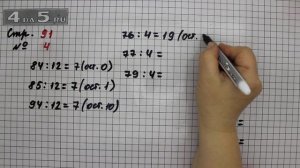 4DA5.RU
Стр. 91
№ 4
84 : 12 = 7 (ост. 0)
85 : 12 = 7 (ост. 1)
94 : 12 = 7 (ост. 10)
76 : 4 = 19 (ост.
77 : 4 =
79 : 4 =